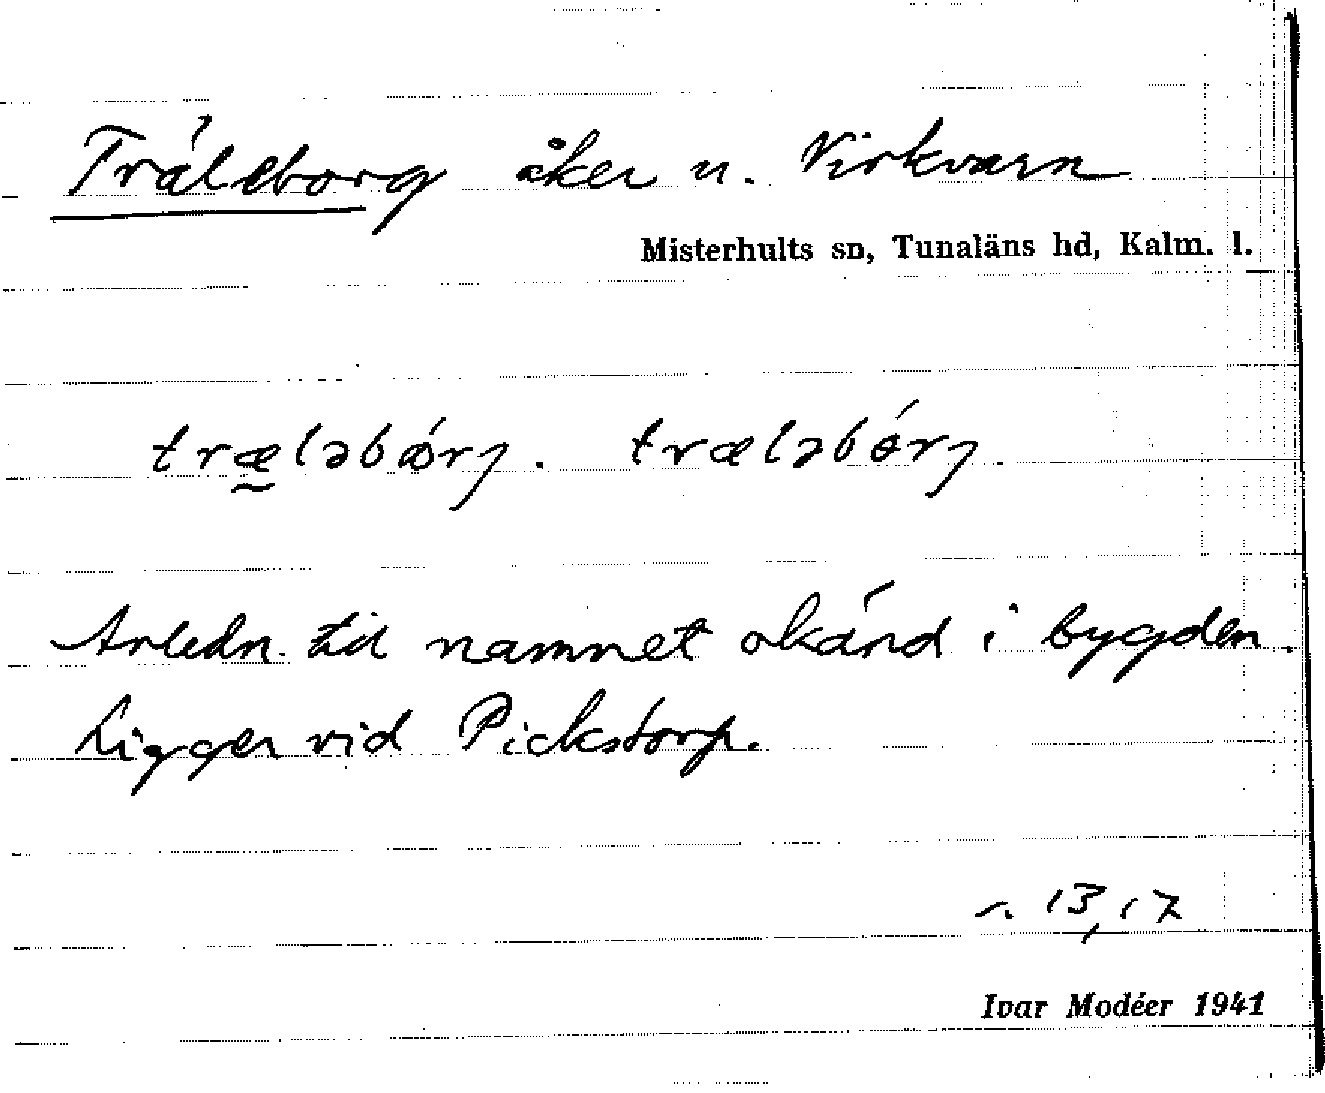 Träleborg åker u. Virkvarn
Misterhults sn, Tunaläns hd, Kalm. l.
træləbǿrj. træləbórj.
Anledn. till namnet okänd i bygden.
Ligger vid Pickstorp.
s. 13, 17
Ivar Modéer 1941